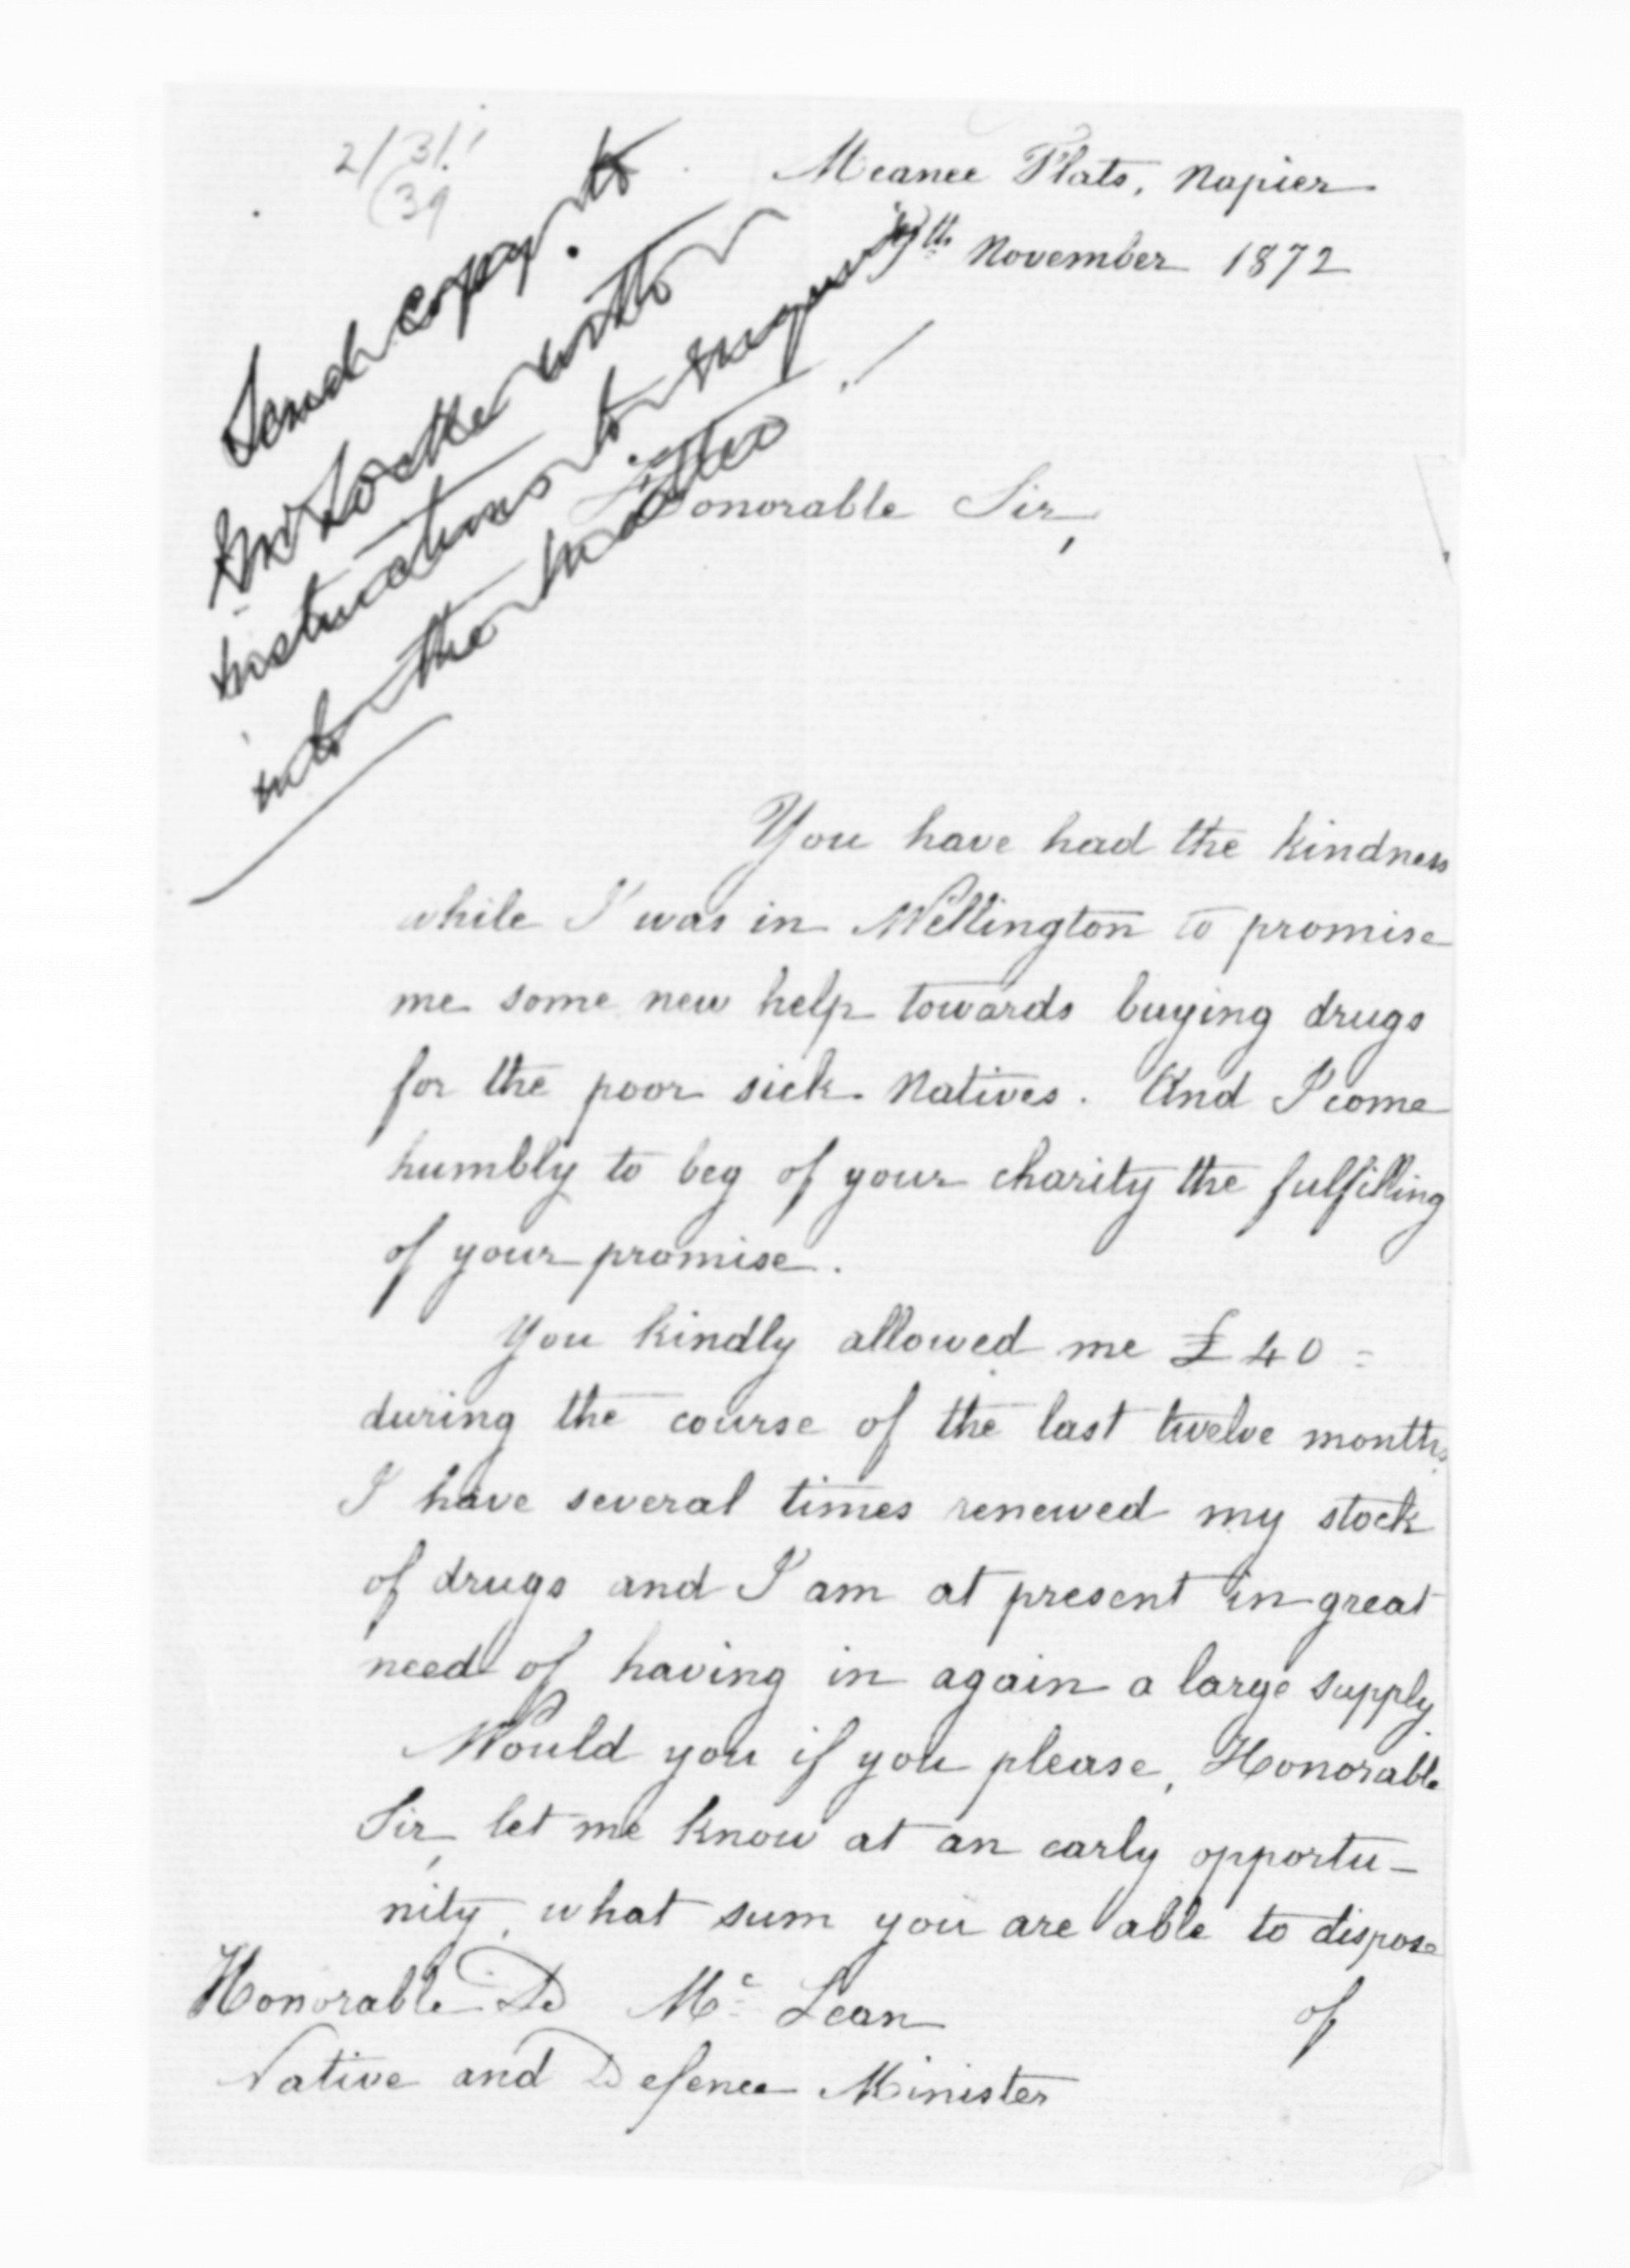 2/31.1
(39
Meanee Flats, Napier
November 1872
Send copy to
Mr Locke with
instructions to inquire
into the matter
Honorable Sir,
You have had the kindness
while I was in Wellington to promise
me some new help towards buying drugs
for the poor sick Natives. And I come
humbly to beg of your charity the fulfilling
of your promise.
You kindly allowed me £40=
during the course of the last twelve months
I have several times renewed my stock
of drugs and I am at present in great
need of having in again a large supply.
Would you if you please, Honorable
Sir, let me know at an early opportu-
nity, what sum you are able to dispose
of
Honorable D Mc Lean
Native and Defence Minister